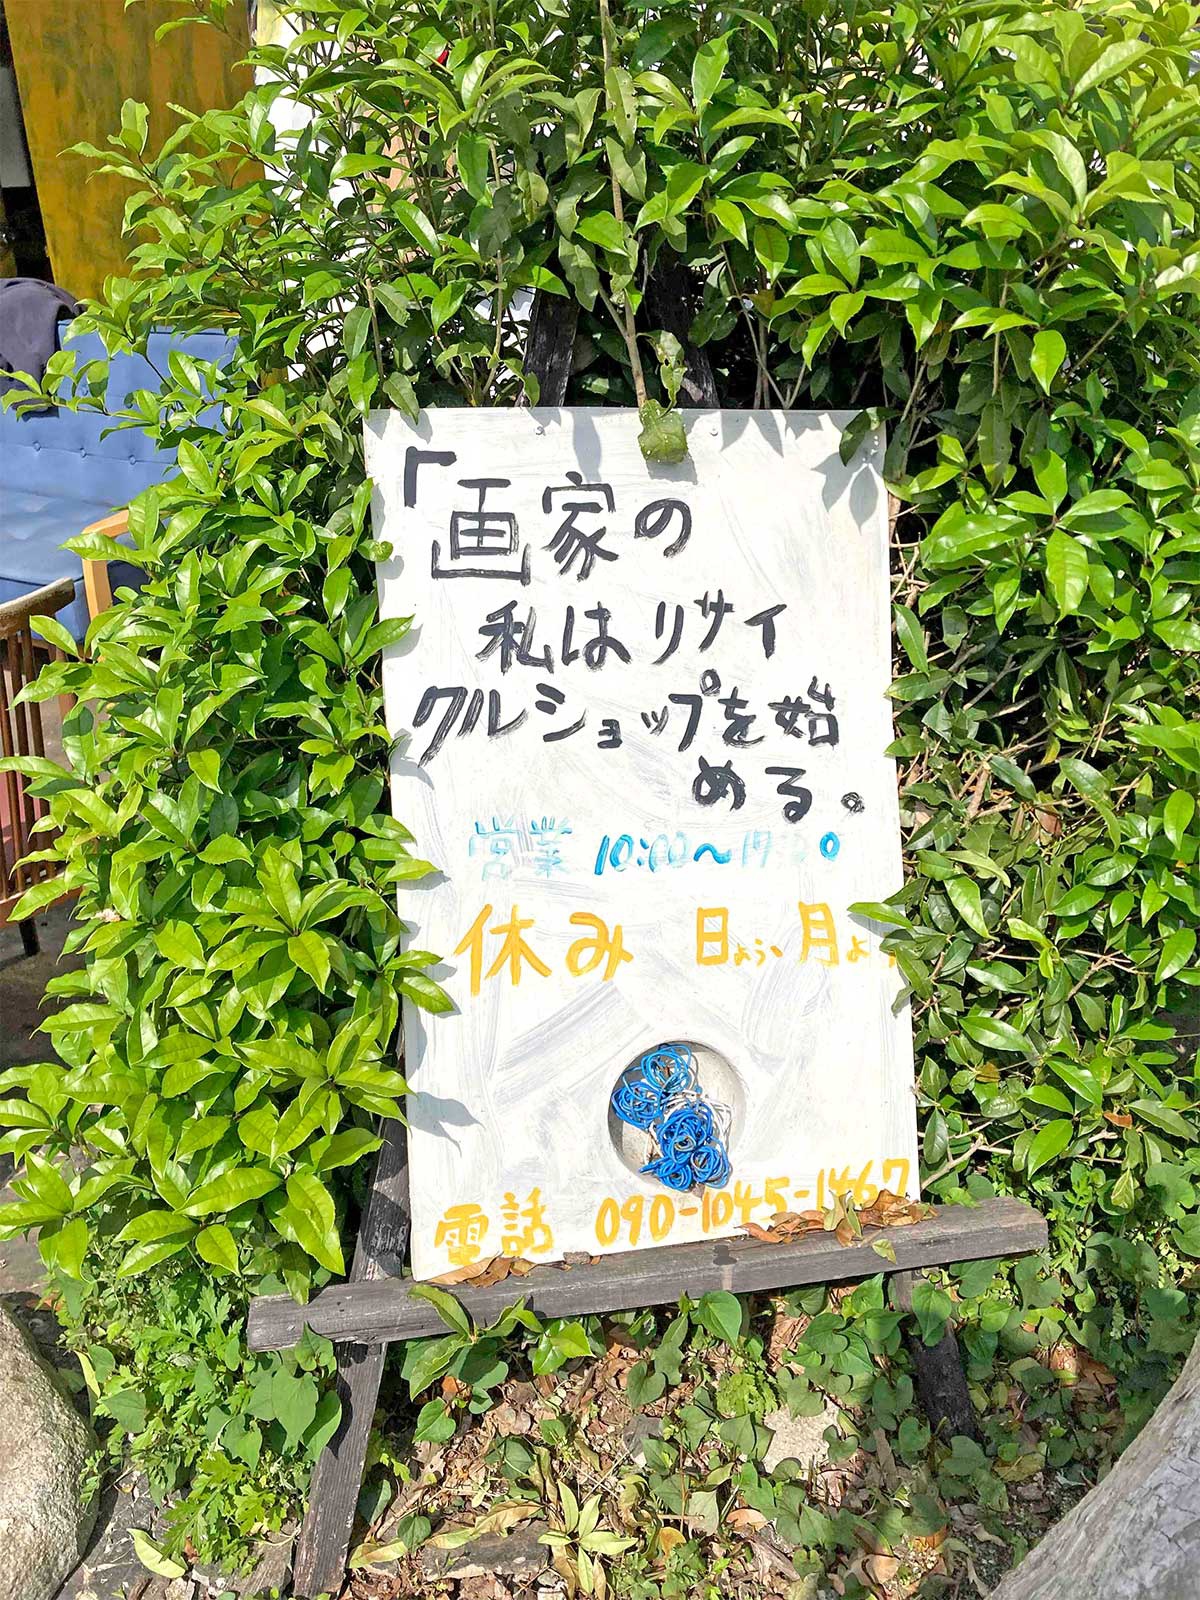 「画家の
私はリサイ
クルショップを始
める。
営業 10:00～17:00
休み 日よう、月よ
電話 090-1045-1467